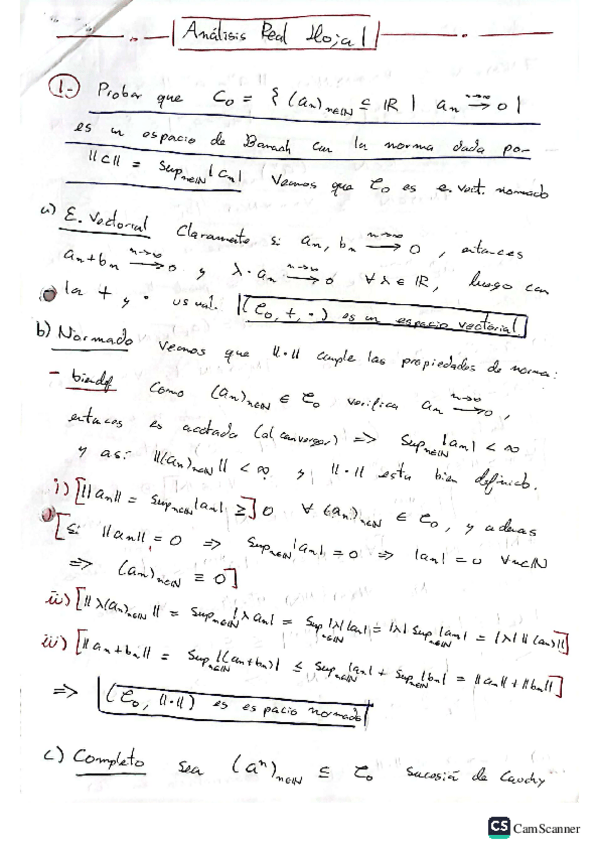 Análisis Real Hoja 1
1.- Probar que C₀ = { (aₙ)ₙ∈ℕ ⊆ ℝ | aₙ →ⁿ→∞ 0 }
es un espacio de Banach con la norma dada por
||c|| = Supₙ∈ℕ |cₙ| Veamos que C₀ es e. vect. normado
a) E. Vectorial Claramente si aₙ, bₙ →ⁿ→∞ 0, entonces
aₙ+bₙ →ⁿ→∞ 0 y λ·aₙ →ⁿ→∞ 0 ∀λ∈ℝ, luego con
la + y · usual. (C₀, +, ·) es un espacio vectorial
b) Normado Veamos que ||·|| cumple las propiedades de norma:
- biendef Como (aₙ)ₙ∈ℕ ∈ C₀ verifica aₙ →ⁿ→∞ 0,
entonces es acotada (al converger) => Supₙ∈ℕ |aₙ| < ∞
y así ||(aₙ)ₙ∈ℕ|| < ∞ y ||·|| esta bien definido.
i) [||aₙ|| = supₙ∈ℕ |aₙ| ≥] 0 ∀ (aₙ)ₙ∈ℕ ∈ C₀, y ademas
[si ||aₙ|| = 0 => Supₙ∈ℕ |aₙ| = 0 => |aₙ| = 0 ∀n∈ℕ
=> (aₙ)ₙ∈ℕ ≡ 0]
ii) [||λ(aₙ)ₙ∈ℕ|| = Supₙ∈ℕ |λaₙ| = Supₙ∈ℕ |λ||aₙ| = |λ| Supₙ∈ℕ |aₙ| = |λ| ||(aₙ)||]
iii) [||aₙ+bₙ|| = Supₙ∈ℕ |(aₙ+bₙ)| ≤ Supₙ∈ℕ |aₙ| + Supₙ∈ℕ |bₙ| = ||aₙ|| + ||bₙ||]
=> (C₀, ||·||) es espacio normado
c) Completo sea (aⁿ)ₙ∈ℕ ⊆ C₀ sucesión de Cauchy
CS CamScanner